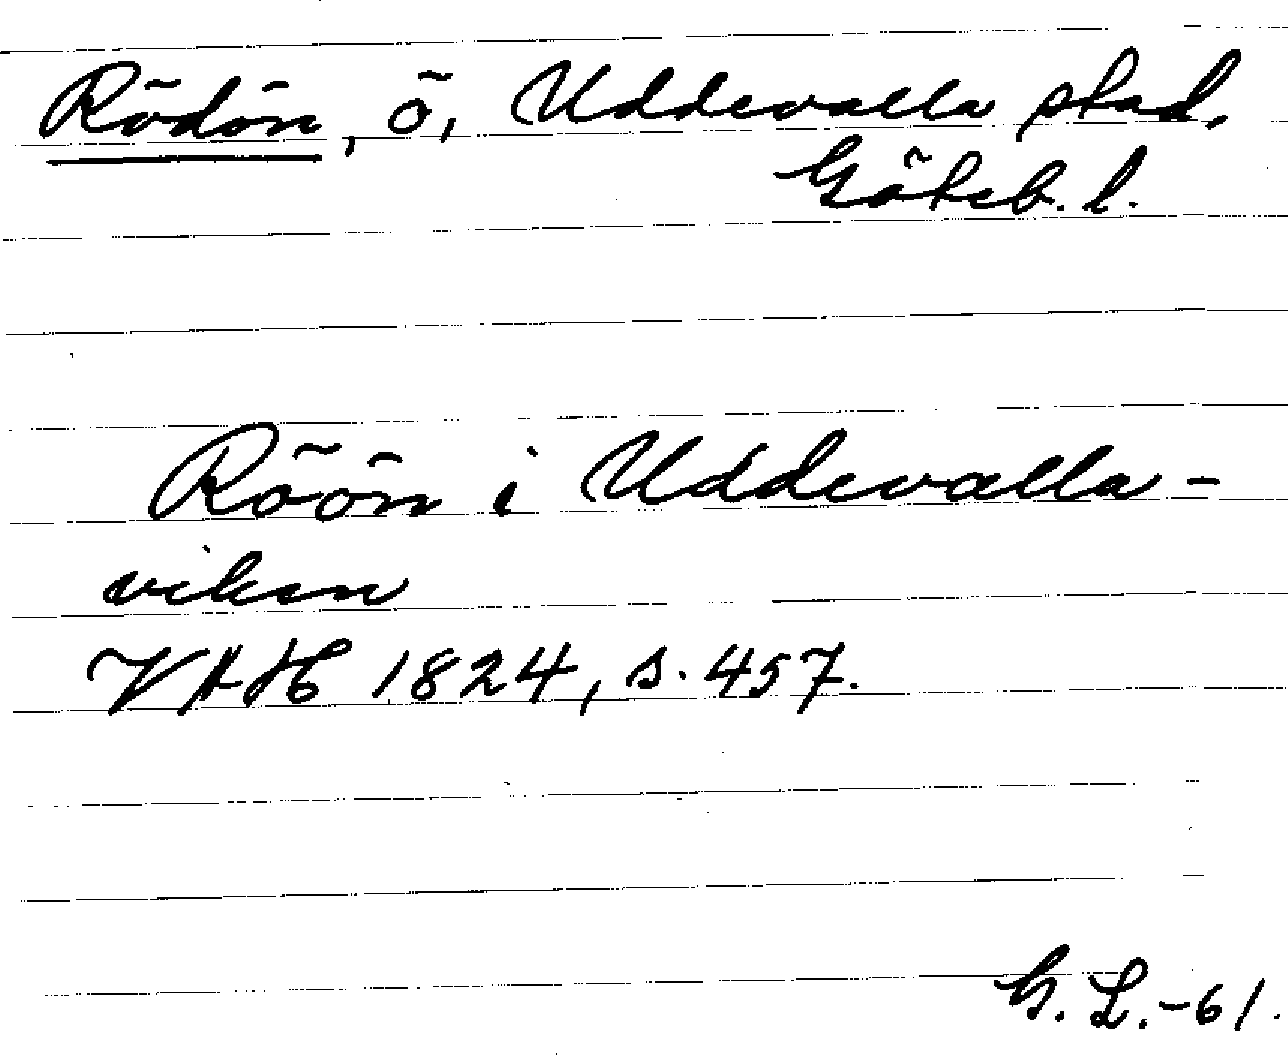 Rödön, ö, Uddevalla stad,
Göteb. l.
Röön i Uddevalla-
viken
VAH 1824, s. 457.
G. L.-61.